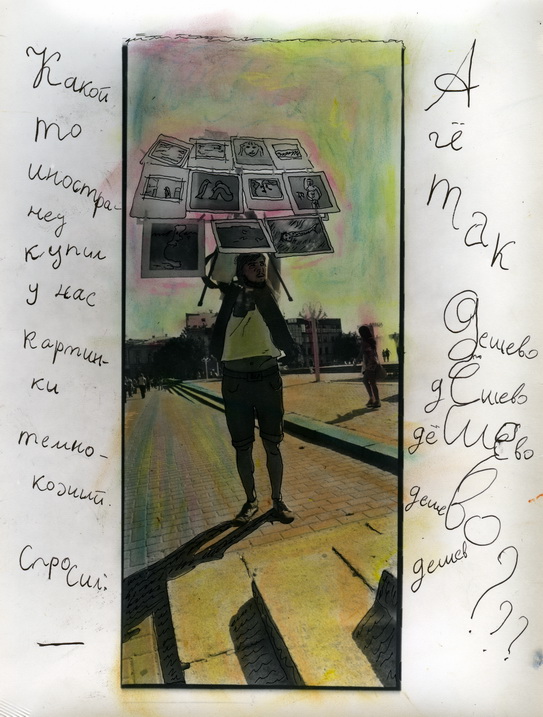 Какой
то
иностра-
нец
купил
у нас
картин-
ки
темно-
кожий.
Спросил:
—
А
чё
так
дешево
дёшево
дёшево
дешево
дешев
???